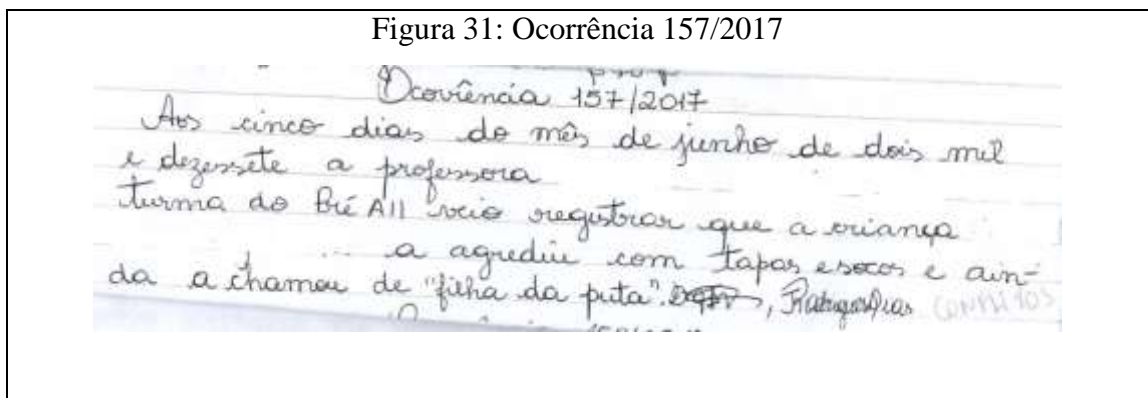 Figura 31: Ocorrência 157/2017
Ocorrência 157/2017
Aos cinco dias do mês de junho de dois mil
e dezessete a professora
turma do Pré AII veio registrar que a criança
a agrediu com tapas e socos e ain-
da a chamou de "filha da puta".
CONFLITOS